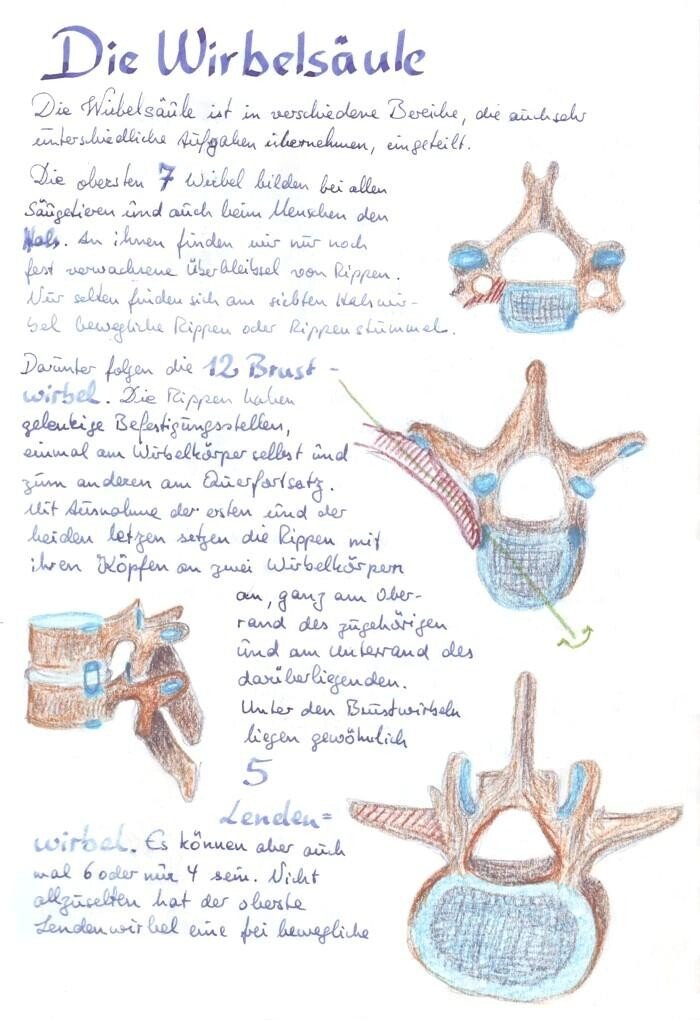 Die Wirbelsäule
Die Wirbelsäule ist in verschiedene Bereiche, die auch sehr
unterschiedliche Aufgaben übernehmen, eingeteilt.
Die obersten 7 Wirbel bilden bei allen
Säugetieren und auch beim Menschen den
Hals. An ihnen finden wir nur noch
fest verwachsene Überbleibsel von Rippen.
Nur selten finden sich am siebten Halswir-
bel bewegliche Rippen oder Rippenstummel.
Darunter folgen die 12 Brust-
wirbel. Die Rippen haben
gelenkige Befestigungsstellen,
einmal am Wirbelkörper selbst und
zum anderen am Querfortsatz.
Mit Ausnahme der ersten und der
beiden letzen setzen die Rippen mit
ihren Köpfen an zwei Wirbelkörpern
an, ganz am Ober-
rand des zugehörigen
und am Unterrand des
darüberliegenden.
Unter den Brustwirbeln
liegen gewöhnlich
5
Lenden=
wirbel. Es können aber auch
mal 6 oder nur 4 sein. Nicht
allzuselten hat der oberste
Lendenwirbel eine frei bewegliche